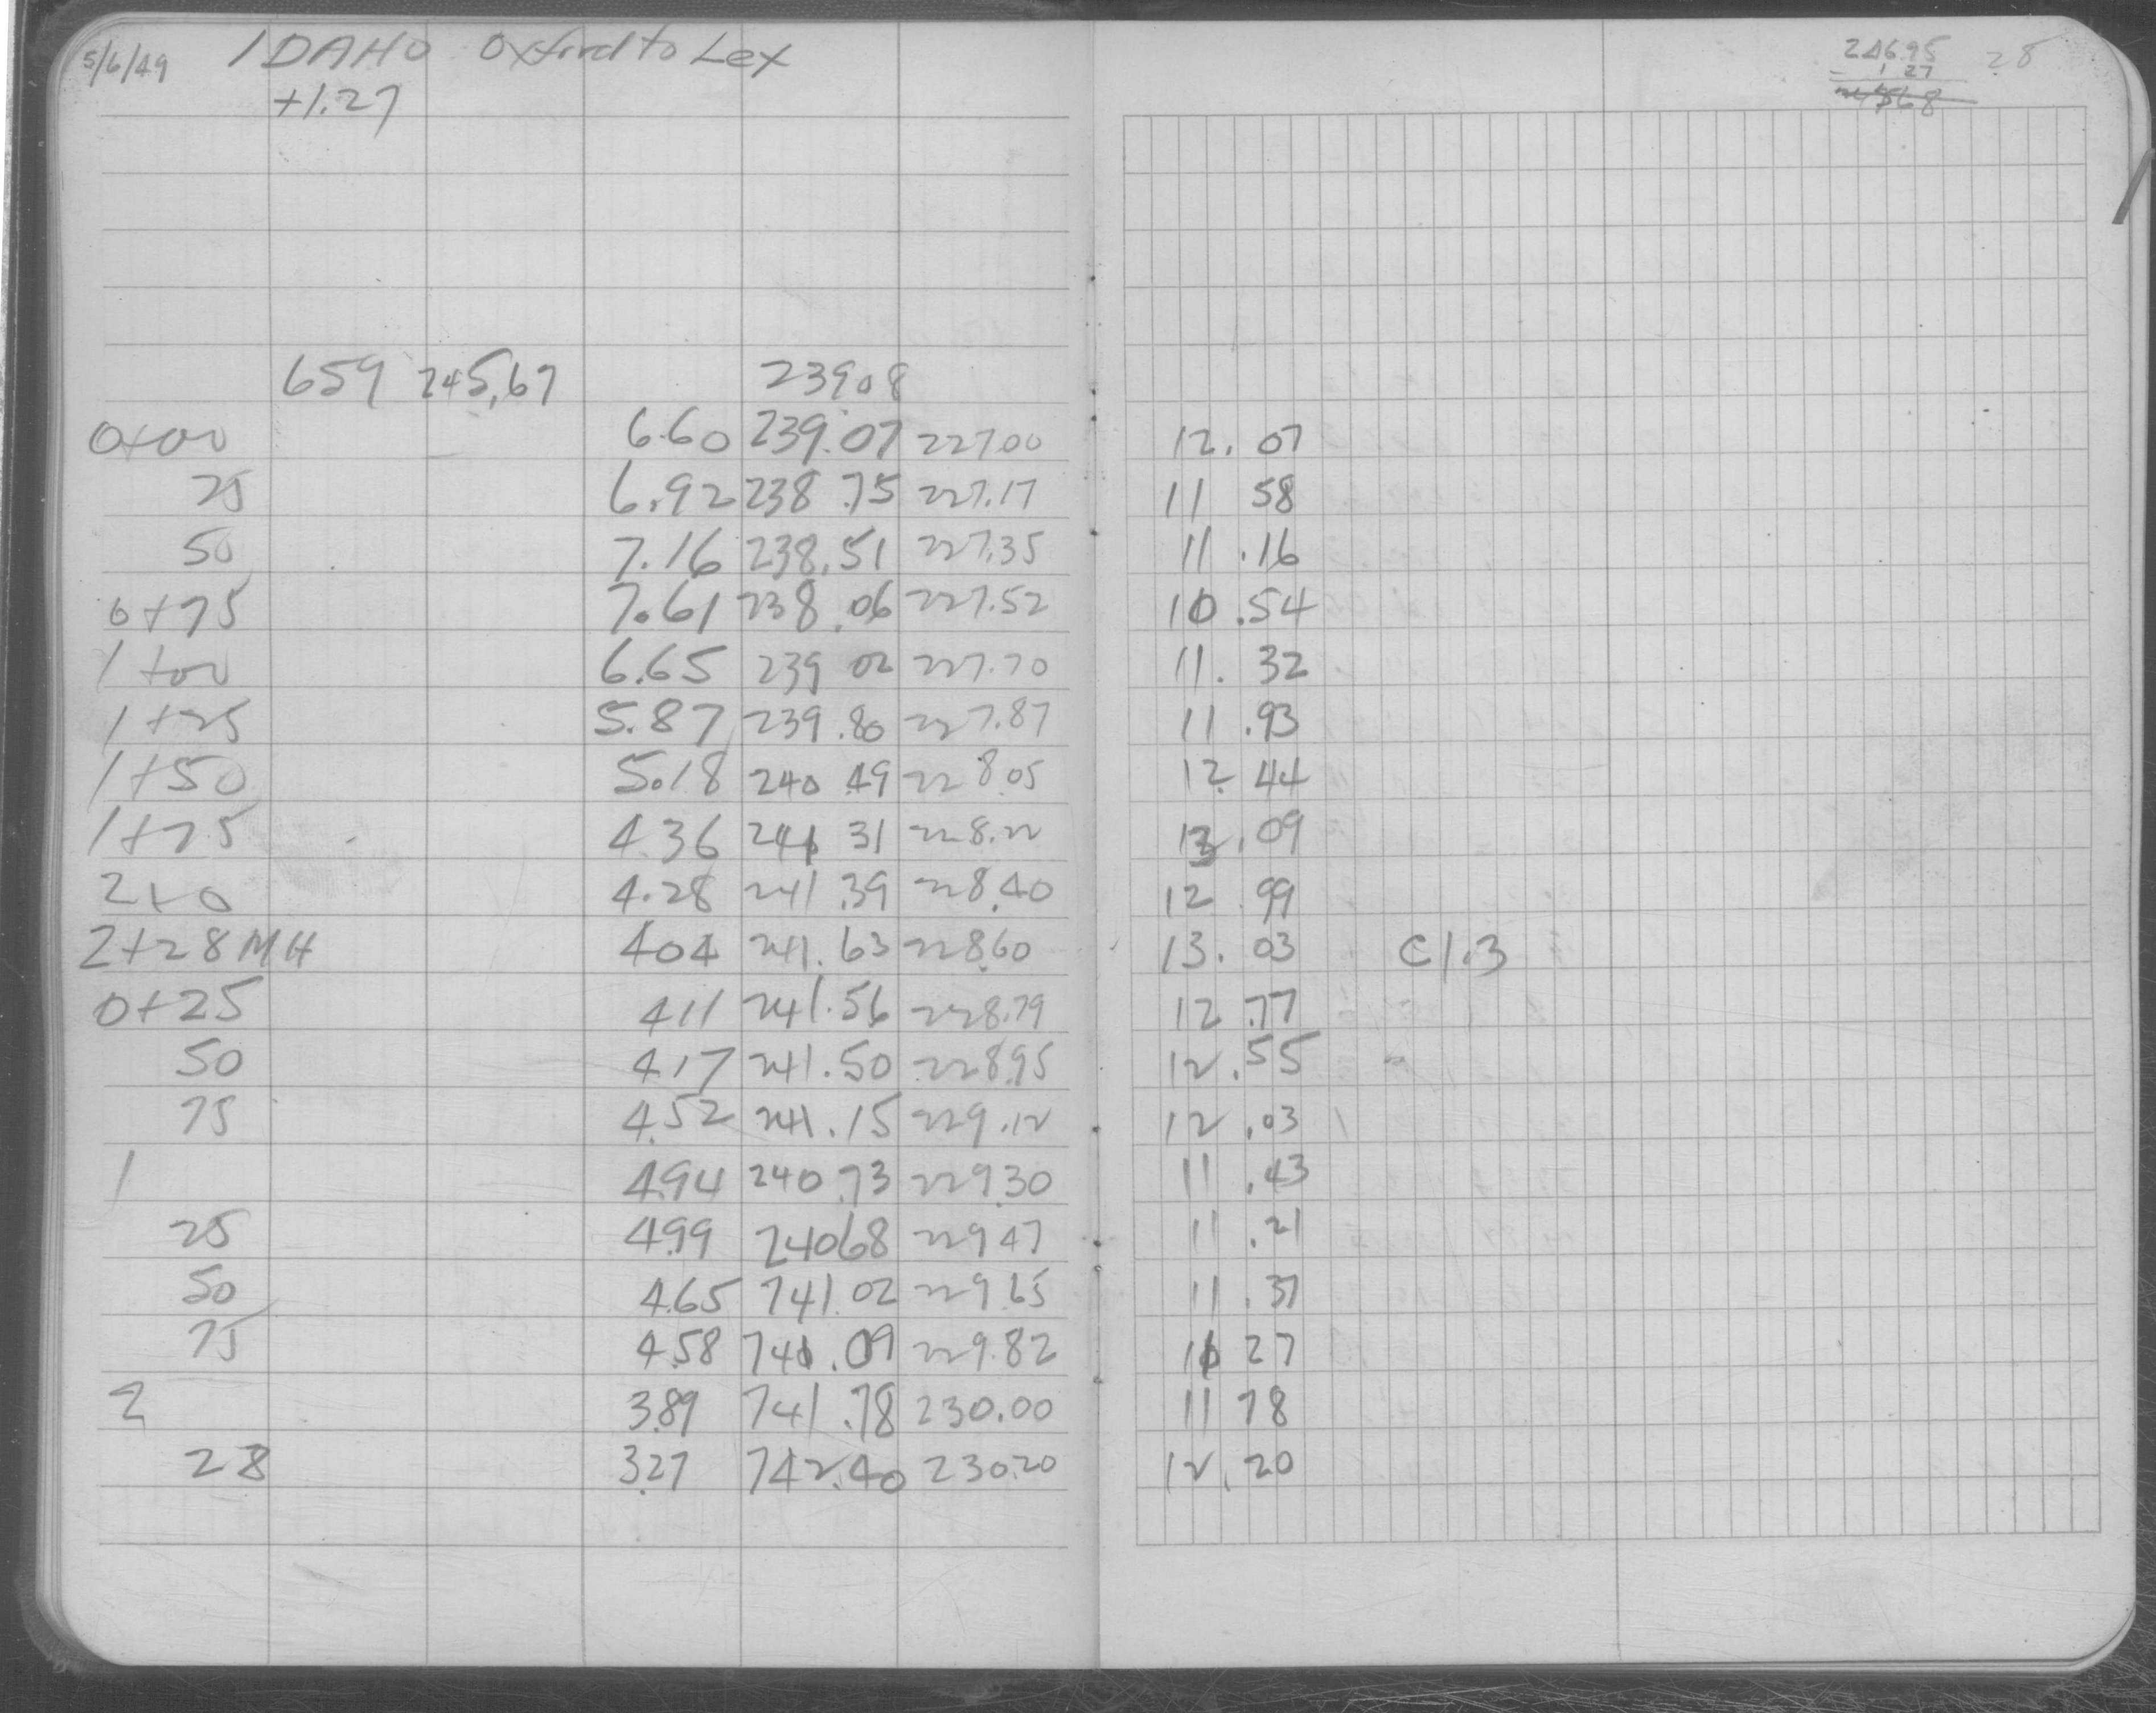 5/6/49 IDAHO Oxford to Lex
+1.27
246.95 28
- 1 27
659 245.67 239.08
0+00 6.60 239.07 227.00 12.07
25 6.92 238.75 227.17 11 58
50 7.16 238.51 227.35 11.16
0+75 7.61 238.06 227.52 10.54
1+00 6.65 239 02 227.70 11.32
1+25 5.87 239.80 227.87 11.93
1+50 5.18 240 49 228.05 12.44
1+75 4.36 241 31 228.22 13.09
2+0 4.28 241.39 228.40 12.99
2+28 MH 404 241.63 228.60 13.03 C1.3
0+25 411 241.56 228.79 12.77
50 4.17 241.50 228.95 12.55
75 4.52 241.15 229.12 12.03
1 4.94 240.73 229.30 11.43
25 4.99 240.68 229 47 11.21
50 4.65 241.02 229 65 11.37
75 4.58 241.09 229.82 11 27
2 3.89 241.78 230.00 11 78
28 3.27 242.40 230.20 12.20